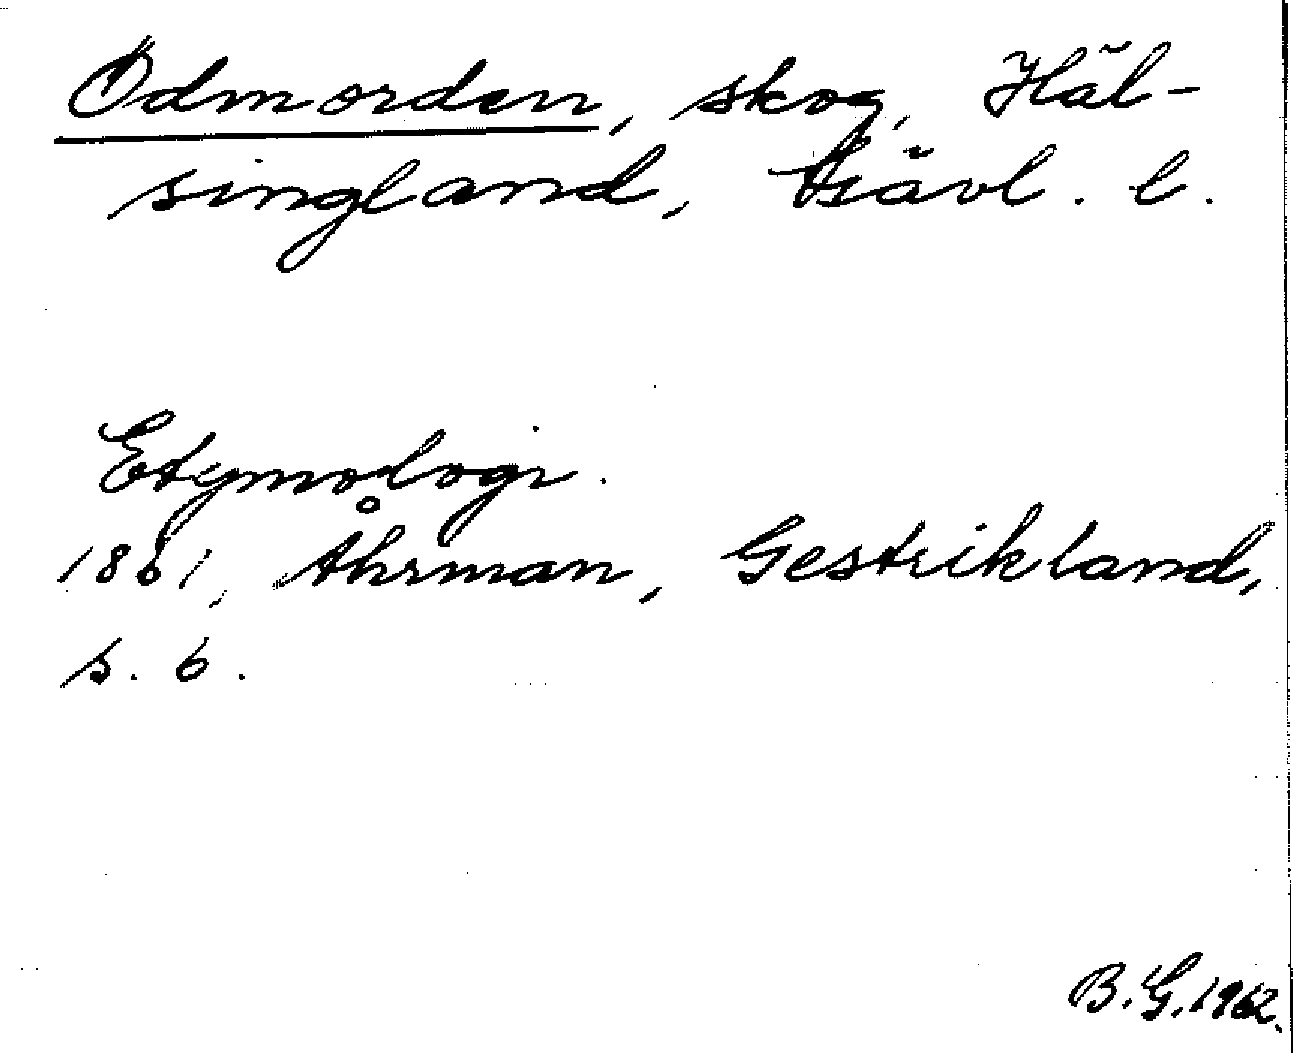 Ödmorden, skog, Häl-
singland, Gävl. l.
Etymologi.
1861, Åhrman, Gestrikland,
s. 6.
B. G. 1962.